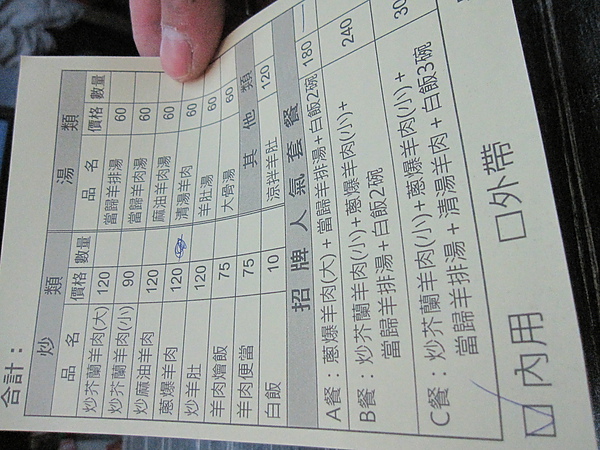 合計：
炒 類
品 名 價格 數量
炒芥蘭羊肉(大) 120
炒芥蘭羊肉(小) 90
炒麻油羊肉 120
蔥爆羊肉 120
炒羊肚 120
羊肉燴飯 75
羊肉便當 75
白飯 10
湯 類
品 名 價格 數量
當歸羊排湯 60
當歸羊肉湯 60
麻油羊肉湯 60
清湯羊肉 60
羊肚湯 60
大骨湯 60
其 他 類
涼拌羊肚 120
招牌人氣套餐
A餐：蔥爆羊肉(大)+當歸羊排湯+白飯2碗 180
B餐：炒芥蘭羊肉(小)+蔥爆羊肉(小)+ 240
當歸羊排湯+白飯2碗
C餐：炒芥蘭羊肉(小)+蔥爆羊肉(小)+ 30
當歸羊排湯+清湯羊肉+白飯3碗
☑內用 □外帶